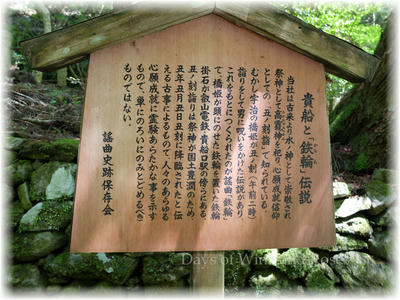 貴船と「鉄輪」伝説
当社は古来より水ノ神として崇敬され
祭神として高龗神を祀り、心願成就信仰
としての「丑ノ刻詣」で知られている。
むかし宇治の橋姫が丑ノ刻(午前二時)
詣りをして男に呪いをかけた伝説があり、
これをもとにつくられたのが謡曲「鉄輪」
で、橋姫が頭にのせた鉄輪を置いた鉄輪
掛石が叡山電鉄・貴船口駅の傍らにある。
丑ノ刻詣りは祭神が国土豊潤のため、
丑年丑月丑日丑刻に降臨されたと伝
える古事によるもので、人々のあらゆる
心願成就に霊験あらたかな事を示す
もので、単にのろいにのみとどめる(べき)
ものではない。
謡曲史跡保存会
Days of Wine and Roses